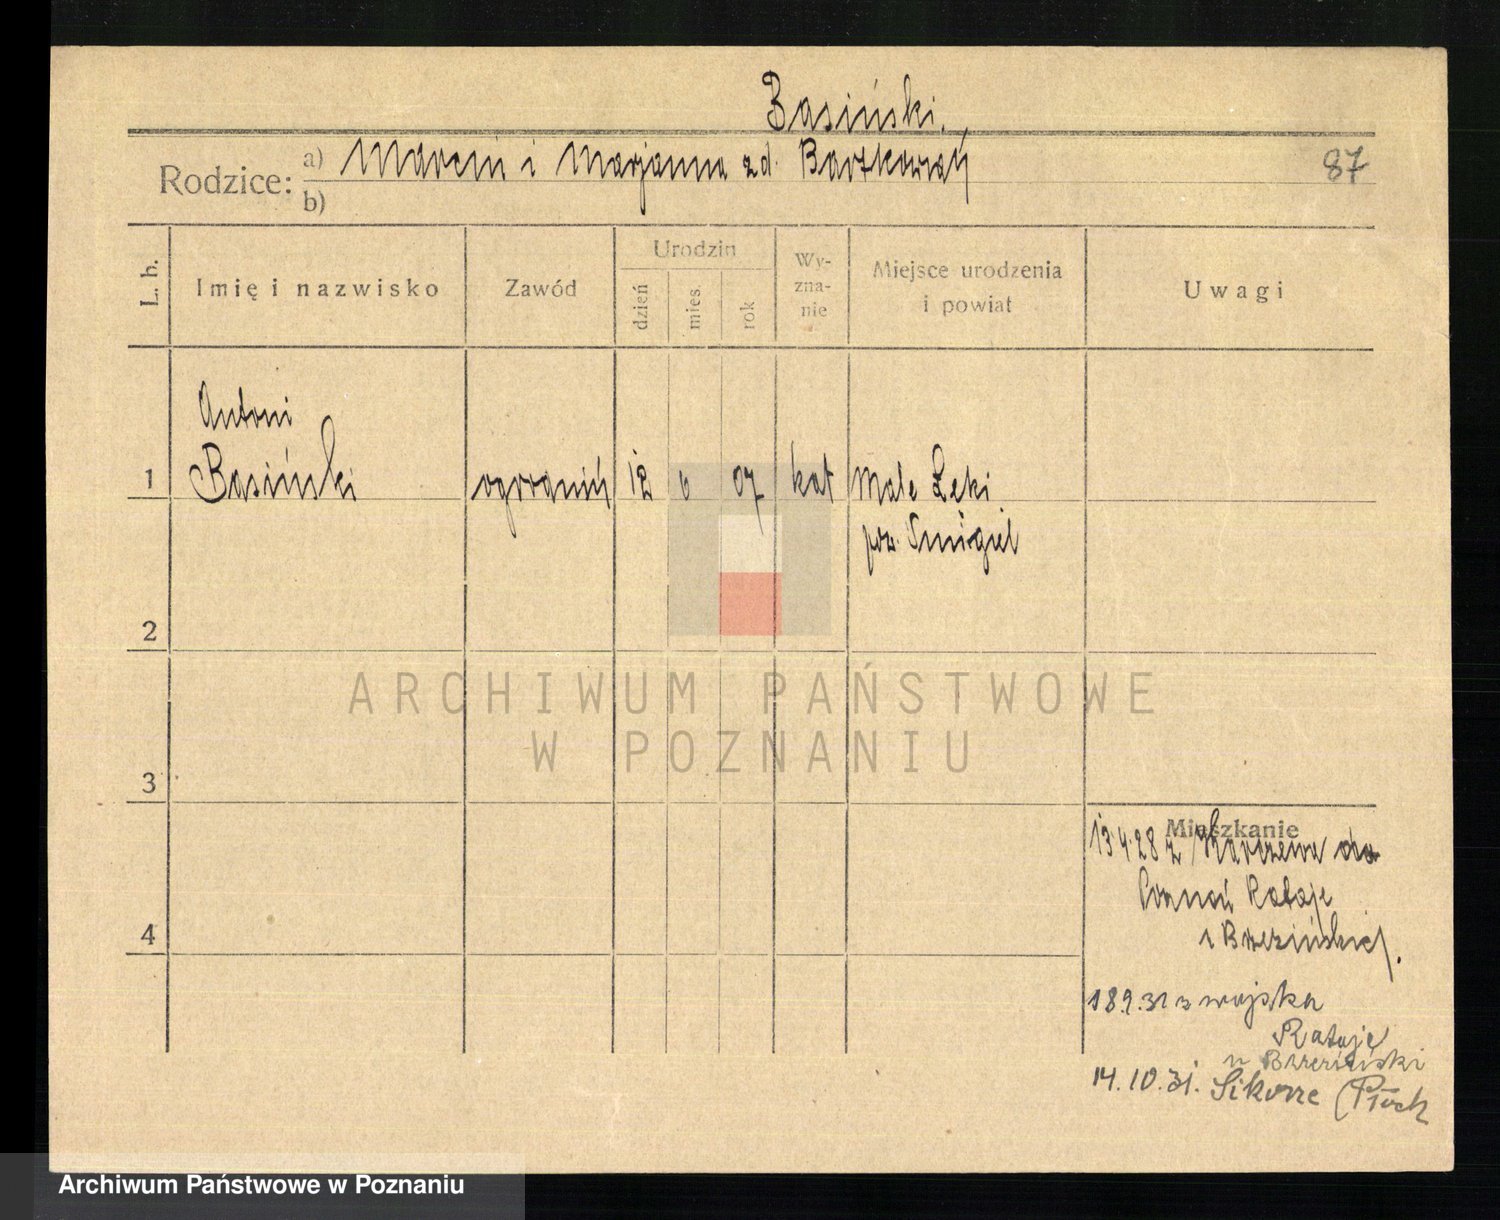 Basiński.
Rodzice:
a) Marcin i Marjanna zd. Bartkowiak
b)
87
L. b.
Imię i nazwisko
Zawód
Urodzin
dzień
mies.
rok
Wy-
zna-
nie
Miejsce urodzenia
i powiat
Uwagi
Antoni
1 Basiński 12 6 07 kat Małe Łęki
pow. Śmigiel
2
ARCHIWUM PAŃSTWOWE
W POZNANIU
3
Mieszkanie
13.4.28 z do
Poznań Rataje
Brzezińskiej.
18.9.31 z wojska
Rataje
u Brzeziński
14.10.31. Sikorze (Płock
4
Archiwum Państwowe w Poznaniu